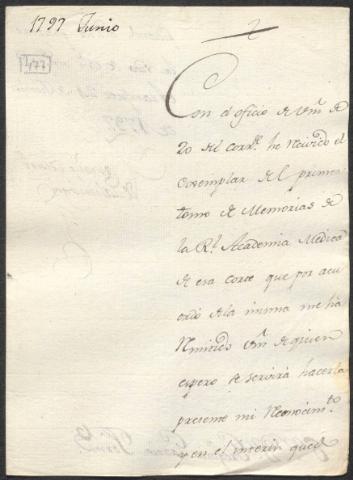 1797 Junio
177
Con el oficio de Vm. de
20 del corrte. he recivido el
exemplar del primer
tomo de Memorias de
la Rl. Academia Medica
de esa corte que por acu
erdo de la misma me ha
remitido Vm. de quien
espero se servirá hacerla
presente mi reconocimto.
y en el interin quedo